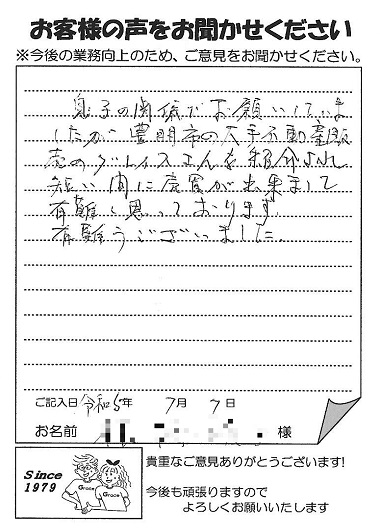 お客様の声をお聞かせください
※今後の業務向上のため、ご意見をお聞かせください。
息子の関係でお願いしていま
したが豊明市の大手不動産販
売のグレイスさんを紹介され
短い間に売買が出来まして
有難く思っております
有難うございました。
ご記入日 令和5年 7月 7日
お名前 様
Since
1979
Grace
Grace
貴重なご意見ありがとうございます!
今後も頑張りますので
よろしくお願いいたします